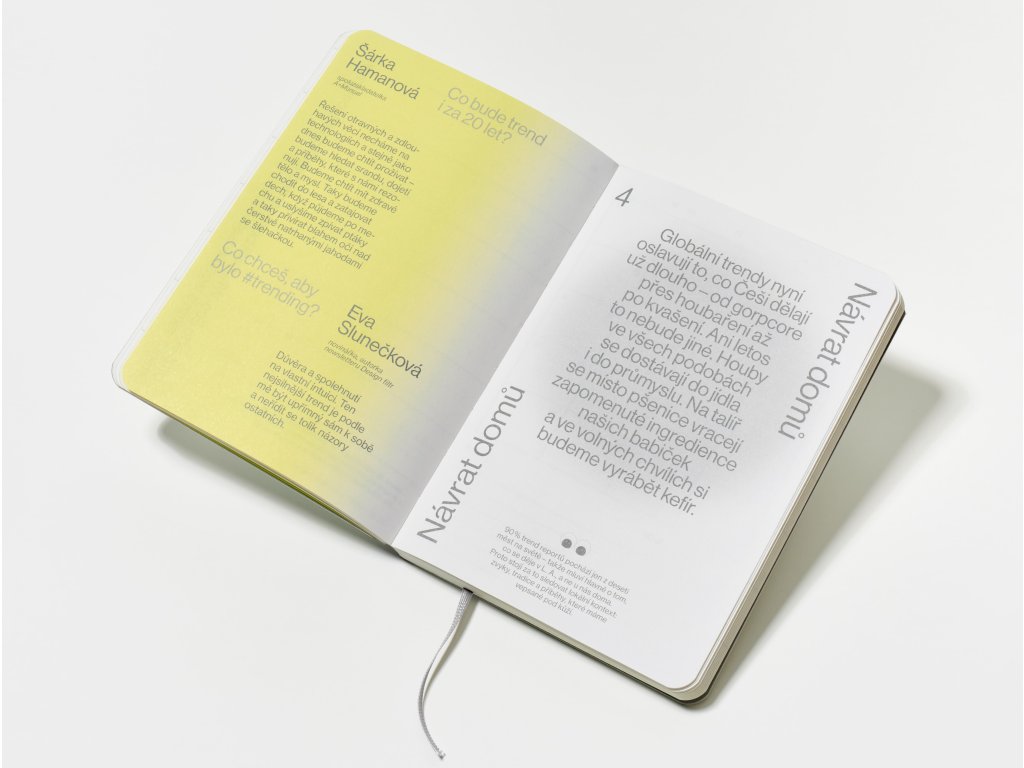 Šárka
Hamanová
spoluzakladatelka
A+Manuel
Co bude trend
i za 20 let?
Řešení otravných a zdlou-
havých věcí necháme na
technologiích a stejně jako
dnes budeme chtít prožívat –
budeme hledat srandu, dojetí
a příběhy, které s námi rezo-
nují. Budeme chtít mít zdravé
tělo a mysl. Taky budeme
chodit do lesa a zatajovat
dech, když půjdeme po me-
chu a uslyšíme zpívat ptáky
a taky přivírat blahem oči nad
čerstvě natrhanými jahodami
se šlehačkou.
Co chceš, aby
bylo #trending?
Eva
Slunečková
novinářka, autorka
newsletteru Design filtr
Důvěra a spolehnutí
na vlastní intuici. Ten
nejsilnější trend je podle
mě být upřímný sám k sobě
a neřídit se tolik názory
ostatních.
4
Globální trendy nyní
oslavují to, co Češi dělají
už dlouho – od gorpcore
přes houbaření až
po kvašení. Ani letos
to nebude jiné. Houby
ve všech podobách
se dostávají do jídla
i do průmyslu. Na talíř
se místo pšenice vracejí
zapomenuté ingredience
našich babiček
a ve volných chvílích si
budeme vyrábět kefír.
Návrat domů
Návrat domů
90% trend reportů pochází jen z deseti
měst na světě – takže mluví hlavně o tom,
co se děje v L. A., a ne u nás doma.
Proto stojí za to sledovat lokální kontext,
zvyky, tradice a příběhy, které máme
vepsané pod kůží.